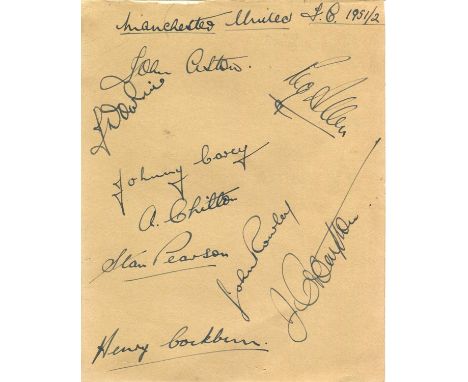 Manchester United F.C. 1951/2
John Aston.
J Downie
Reg Allen
Johnny Carey
A. Chilton
Stan Pearson
John Rowley
Henry Cockburn.